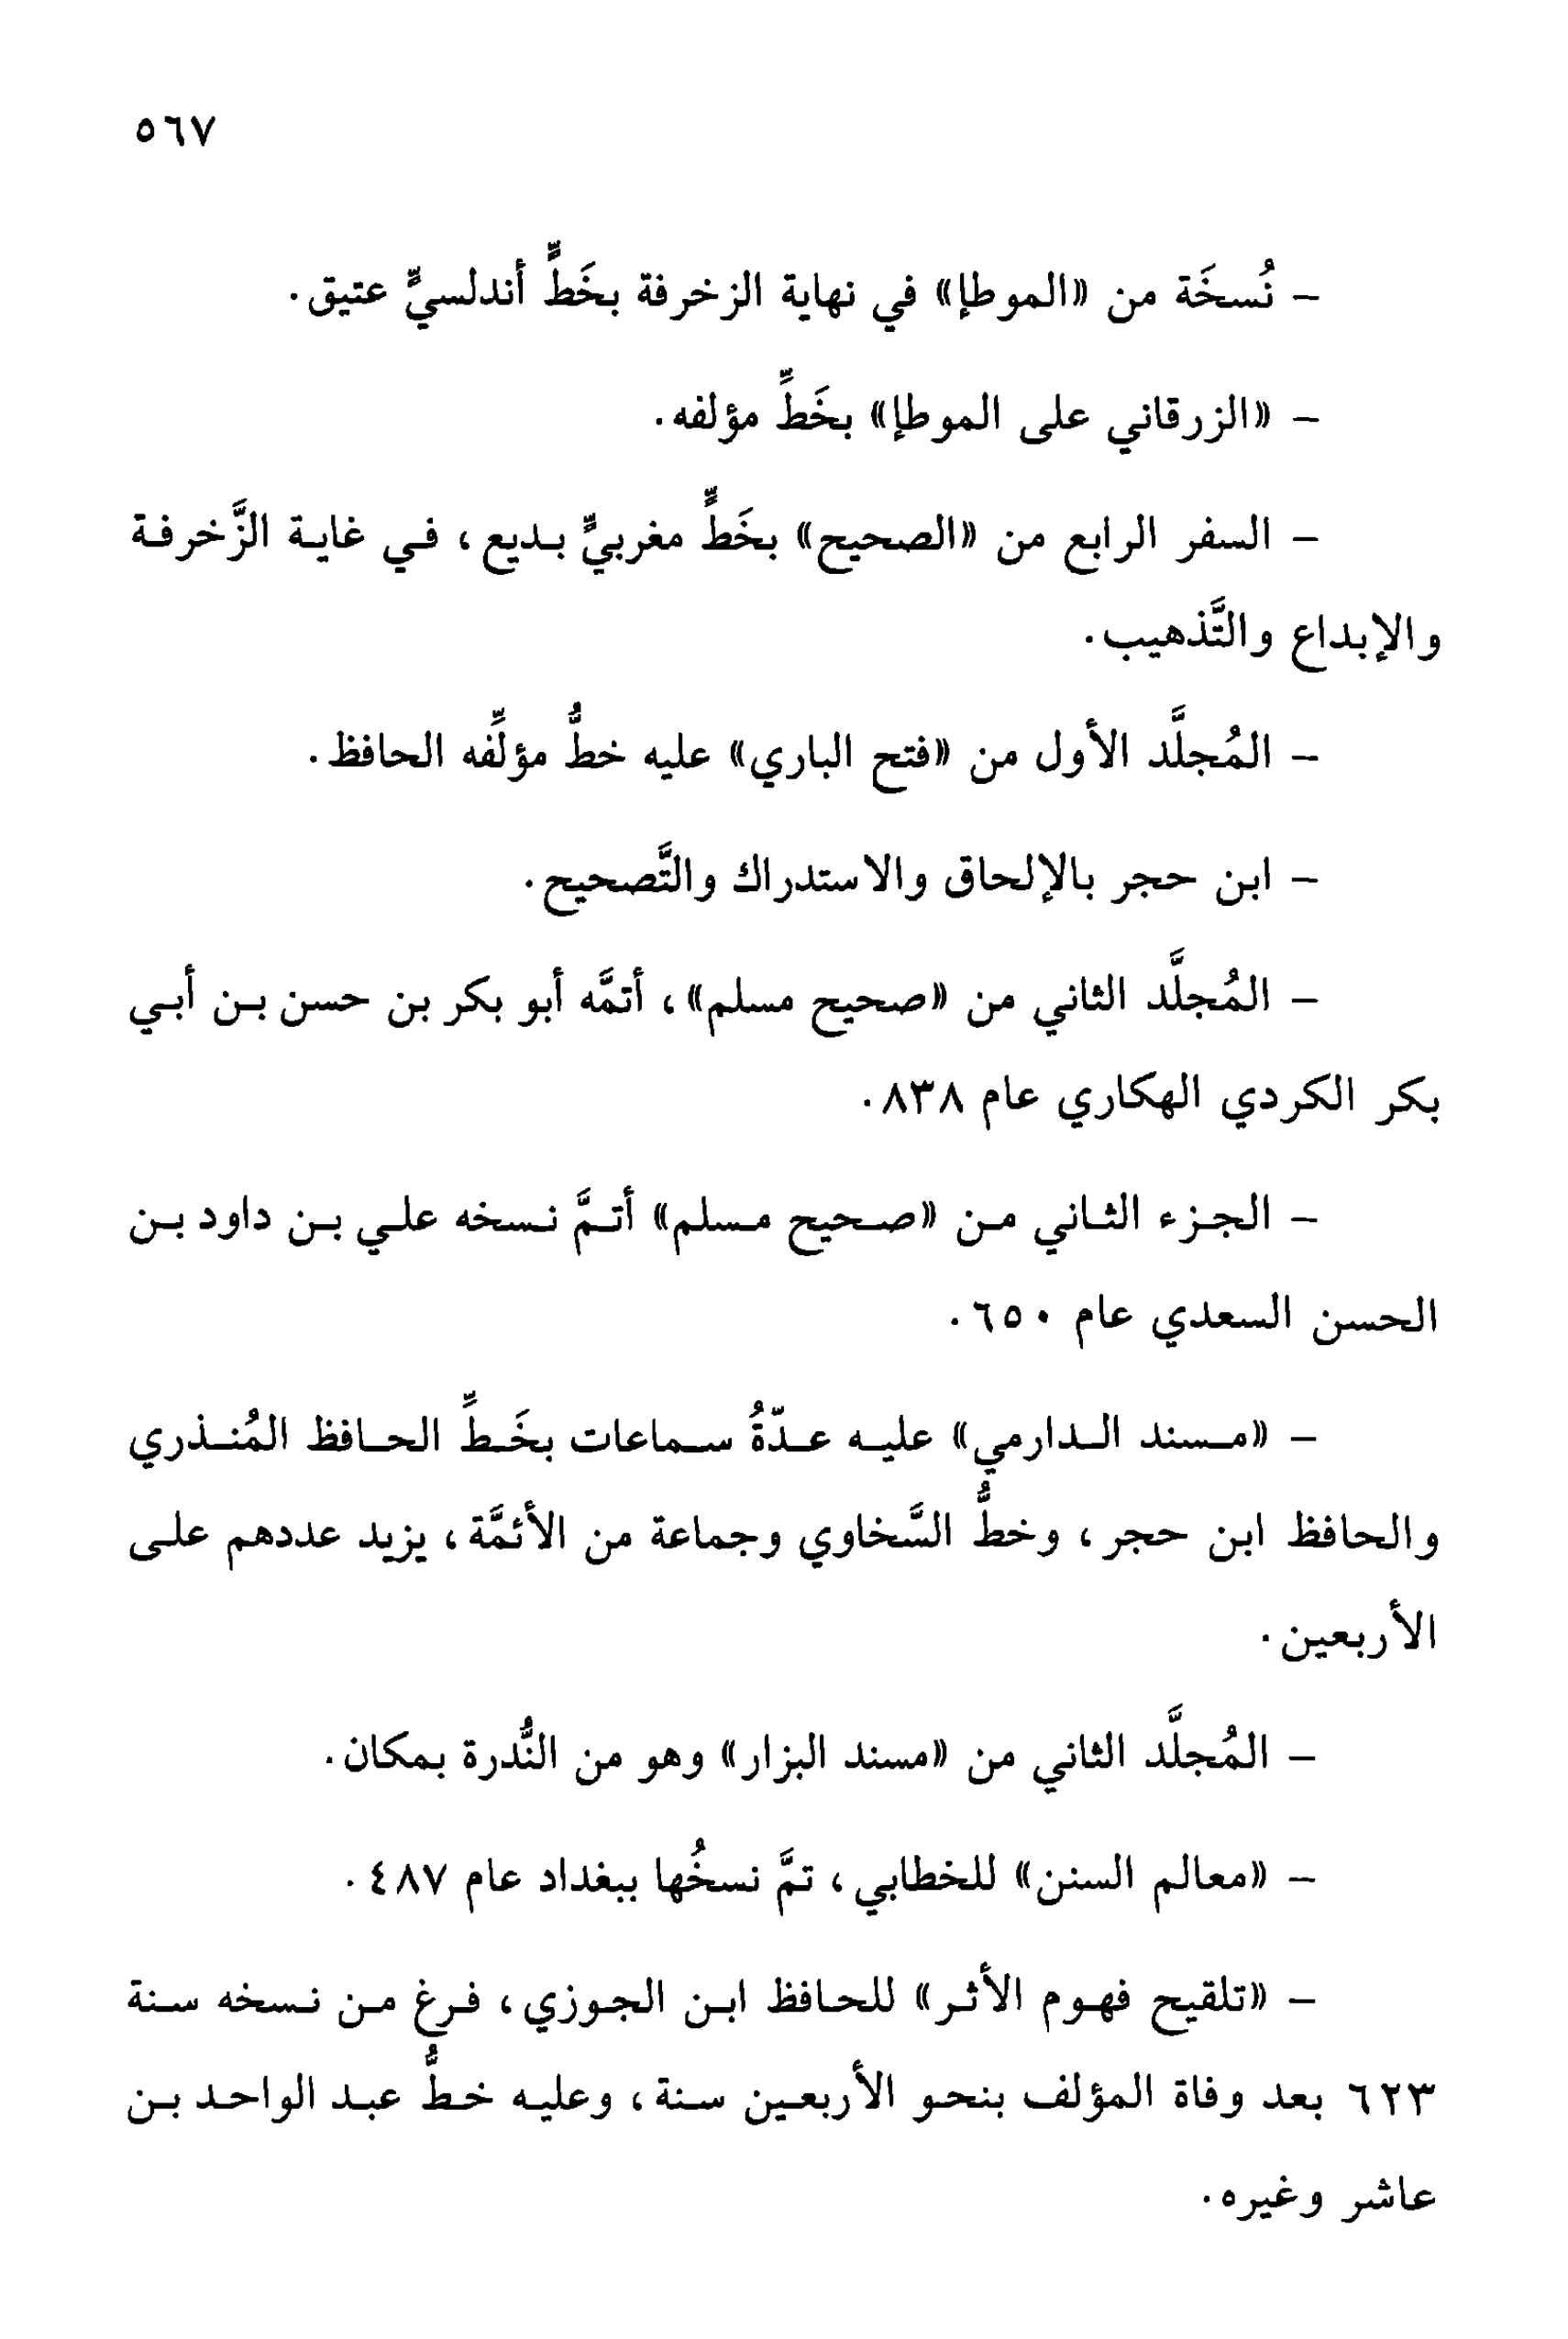 ٥٦٧
- نُسخَة من «الموطإ» في نهاية الزخرفة بخَطٍّ أندلسيٍّ عتيق.
- «الزرقاني على الموطإ» بخَطِّ مؤلفه.
- السفر الرابع من «الصحيح» بخَطٍّ مغربيٍّ بديع، في غاية الزَّخرفة
والإبداع والتَّذهيب.
- المُجلَّد الأول من «فتح الباري» عليه خطُّ مؤلِّفه الحافظ.
- ابن حجر بالإلحاق والاستدراك والتَّصحيح.
- المُجلَّد الثاني من «صحيح مسلم»، أتمَّه أبو بكر بن حسن بن أبي
بكر الكردي الهكاري عام ٨٣٨.
- الجزء الثاني من «صحيح مسلم» أتمَّ نسخه علي بن داود بن
الحسن السعدي عام ٦٥٠.
- «مسند الدارمي» عليه عدّةُ سماعات بخَطِّ الحافظ المُنذري
والحافظ ابن حجر، وخطُّ السَّخاوي وجماعة من الأئمَّة، يزيد عددهم على
الأربعين.
- المُجلَّد الثاني من «مسند البزار» وهو من النُّدرة بمكان.
- «معالم السنن» للخطابي، تمَّ نسخُها ببغداد عام ٤٨٧.
- «تلقيح فهوم الأثر» للحافظ ابن الجوزي، فرغ من نسخه سنة
٦٢٣ بعد وفاة المؤلف بنحو الأربعين سنة، وعليه خطُّ عبد الواحد بن
عاشر وغيره.